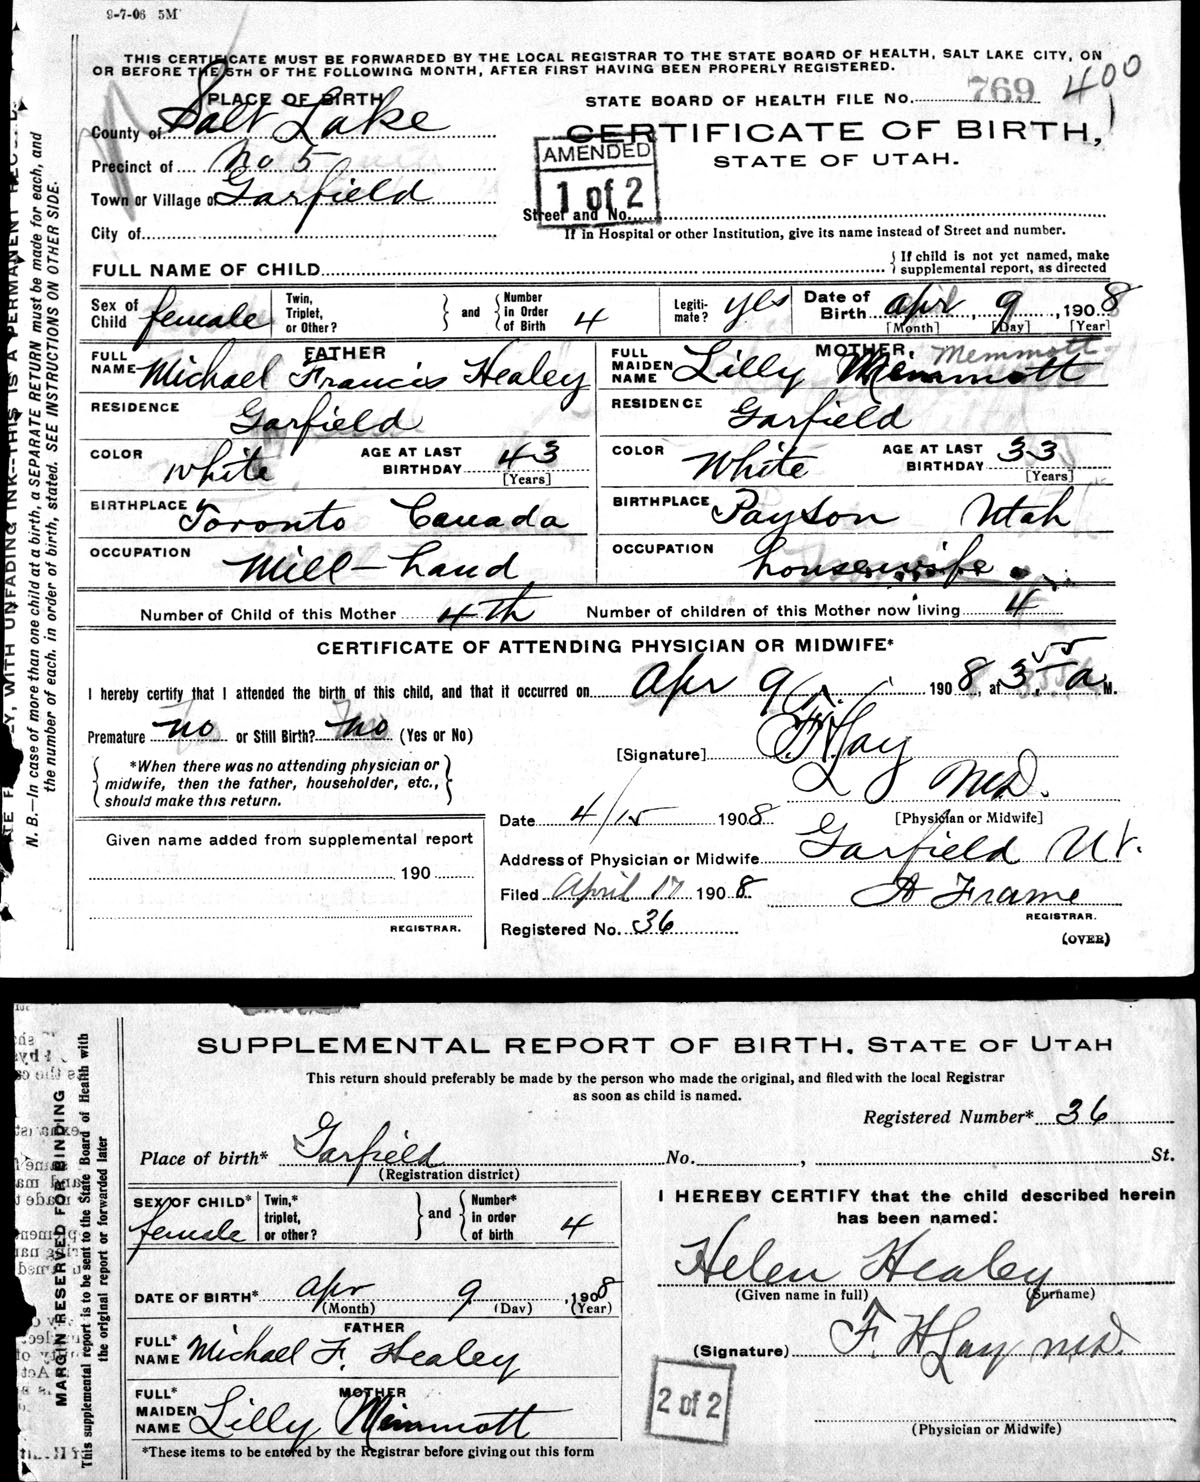 9-7-06 5M
THIS CERTIFICATE MUST BE FORWARDED BY THE LOCAL REGISTRAR TO THE STATE BOARD OF HEALTH, SALT LAKE CITY, ON
OR BEFORE THE 5TH OF THE FOLLOWING MONTH, AFTER FIRST HAVING BEEN PROPERLY REGISTERED.
PLACE OF BIRTH
STATE BOARD OF HEALTH FILE No. 769 400
County of Salt Lake
CERTIFICATE OF BIRTH,
STATE OF UTAH.
AMENDED
1 of 2
Precinct of No 5
Town or Village of Garfield
Street and No.
City of
If in Hospital or other Institution, give its name instead of Street and number.
FULL NAME OF CHILD
{ If child is not yet named, make
supplemental report, as directed
Sex of Child female
Twin, Triplet, or Other?
and
Number in Order of Birth 4
Legiti-mate? yes
Date of Birth Apr 9, 1908
[Month] [Day] [Year]
FATHER
FULL NAME Michael Francis Healey
MOTHER, Memmott
FULL MAIDEN NAME Lilly Memmott
RESIDENCE Garfield
RESIDENCE Garfield
COLOR White
AGE AT LAST BIRTHDAY 43
[Years]
COLOR White
AGE AT LAST BIRTHDAY 33
[Years]
BIRTHPLACE Toronto Canada
BIRTHPLACE Payson Utah
OCCUPATION Mill-hand
OCCUPATION housewife
Number of Child of this Mother 4th
Number of children of this Mother now living 4
CERTIFICATE OF ATTENDING PHYSICIAN OR MIDWIFE*
I hereby certify that I attended the birth of this child, and that it occurred on Apr 9 1908, at 3 55 a M.
Premature no or Still Birth? No (Yes or No)
[Signature] F H Lay
MD.
[Physician or Midwife]
*When there was no attending physician or
midwife, then the father, householder, etc.,
should make this return.
Date 4/15 1908
Given name added from supplemental report
190
REGISTRAR.
Address of Physician or Midwife Garfield Ut.
Filed April 17 1908
A Frame
REGISTRAR.
Registered No. 36
(OVER)
N. B.—In case of more than one child at a birth, a SEPARATE RETURN must be made for each, and
the number of each, in order of birth, stated. SEE INSTRUCTIONS ON OTHER SIDE.
WITH UNFADING INK—THIS IS A PERMANENT
SUPPLEMENTAL REPORT OF BIRTH, STATE OF UTAH
This return should preferably be made by the person who made the original, and filed with the local Registrar
as soon as child is named.
Registered Number* 36
Place of birth* Garfield No. , St.
(Registration district)
SEX OF CHILD* female
Twin,* triplet, or other?
and
Number* in order of birth 4
I HEREBY CERTIFY that the child described herein
has been named:
Helen Healey
(Given name in full) (Surname)
DATE OF BIRTH* Apr 9, 1908
(Month) (Day) (Year)
FATHER
FULL* NAME Michael F. Healey
(Signature) F. H Lay MD.
MOTHER
FULL* MAIDEN NAME Lilly Memmott
2 of 2
(Physician or Midwife)
*These items to be entered by the Registrar before giving out this form
MARGIN RESERVED FOR BINDING
This supplemental report is to be sent to the State Board of Health with
the original report or forwarded later